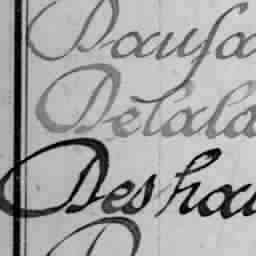 Dausa
Delala
Deshau